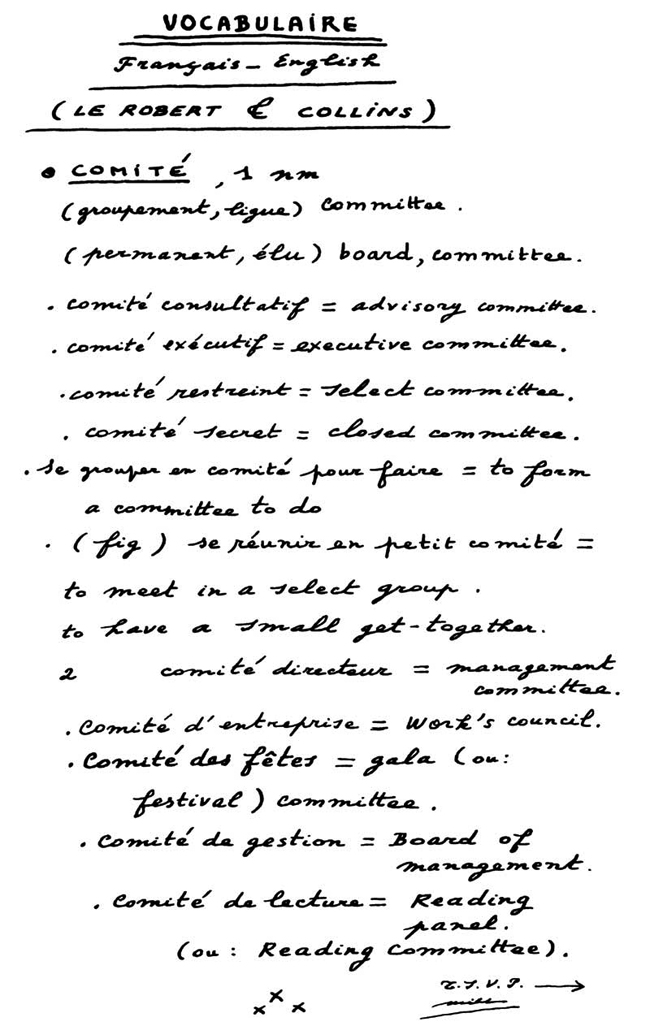 VOCABULAIRE
Français - English
(LE ROBERT & COLLINS)
• COMITÉ, 1 nm
(groupement, ligue) committee.
(permanent, élu) board, committee.
. comité consultatif = advisory committee.
. comité exécutif = executive committee.
. comité restreint = select committee.
. comité secret = closed committee.
. se grouper en comité pour faire = to form
a committee to do
. (fig) se réunir en petit comité =
to meet in a select group.
to have a small get-together.
2 comité directeur = management
committee.
. Comité d'entreprise = Work's council.
. Comité des fêtes = gala (ou:
festival) committee.
. Comité de gestion = Board of
management.
. Comité de lecture = Reading
panel.
(ou : Reading Committee).
T.S.V.P. →
x x x